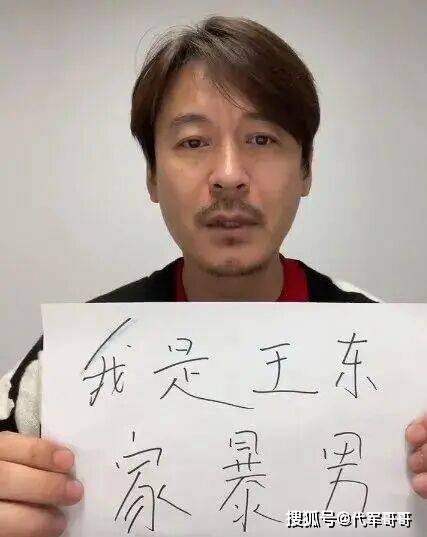 我是王东
家暴男
搜狐号@代军哥哥